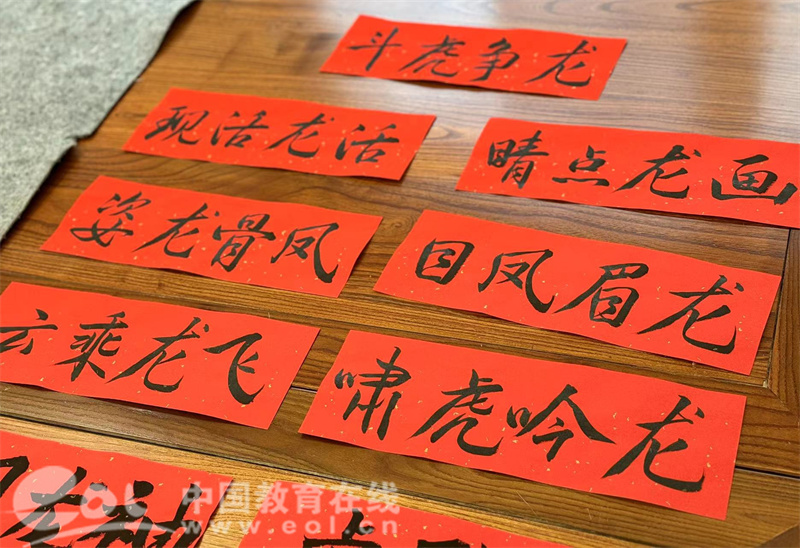 龙争虎斗
活龙活现
画龙点睛
凤骨龙姿
龙眉凤目
飞龙乘云
龙吟虎啸
eol 中国教育在线
www.eol.cn